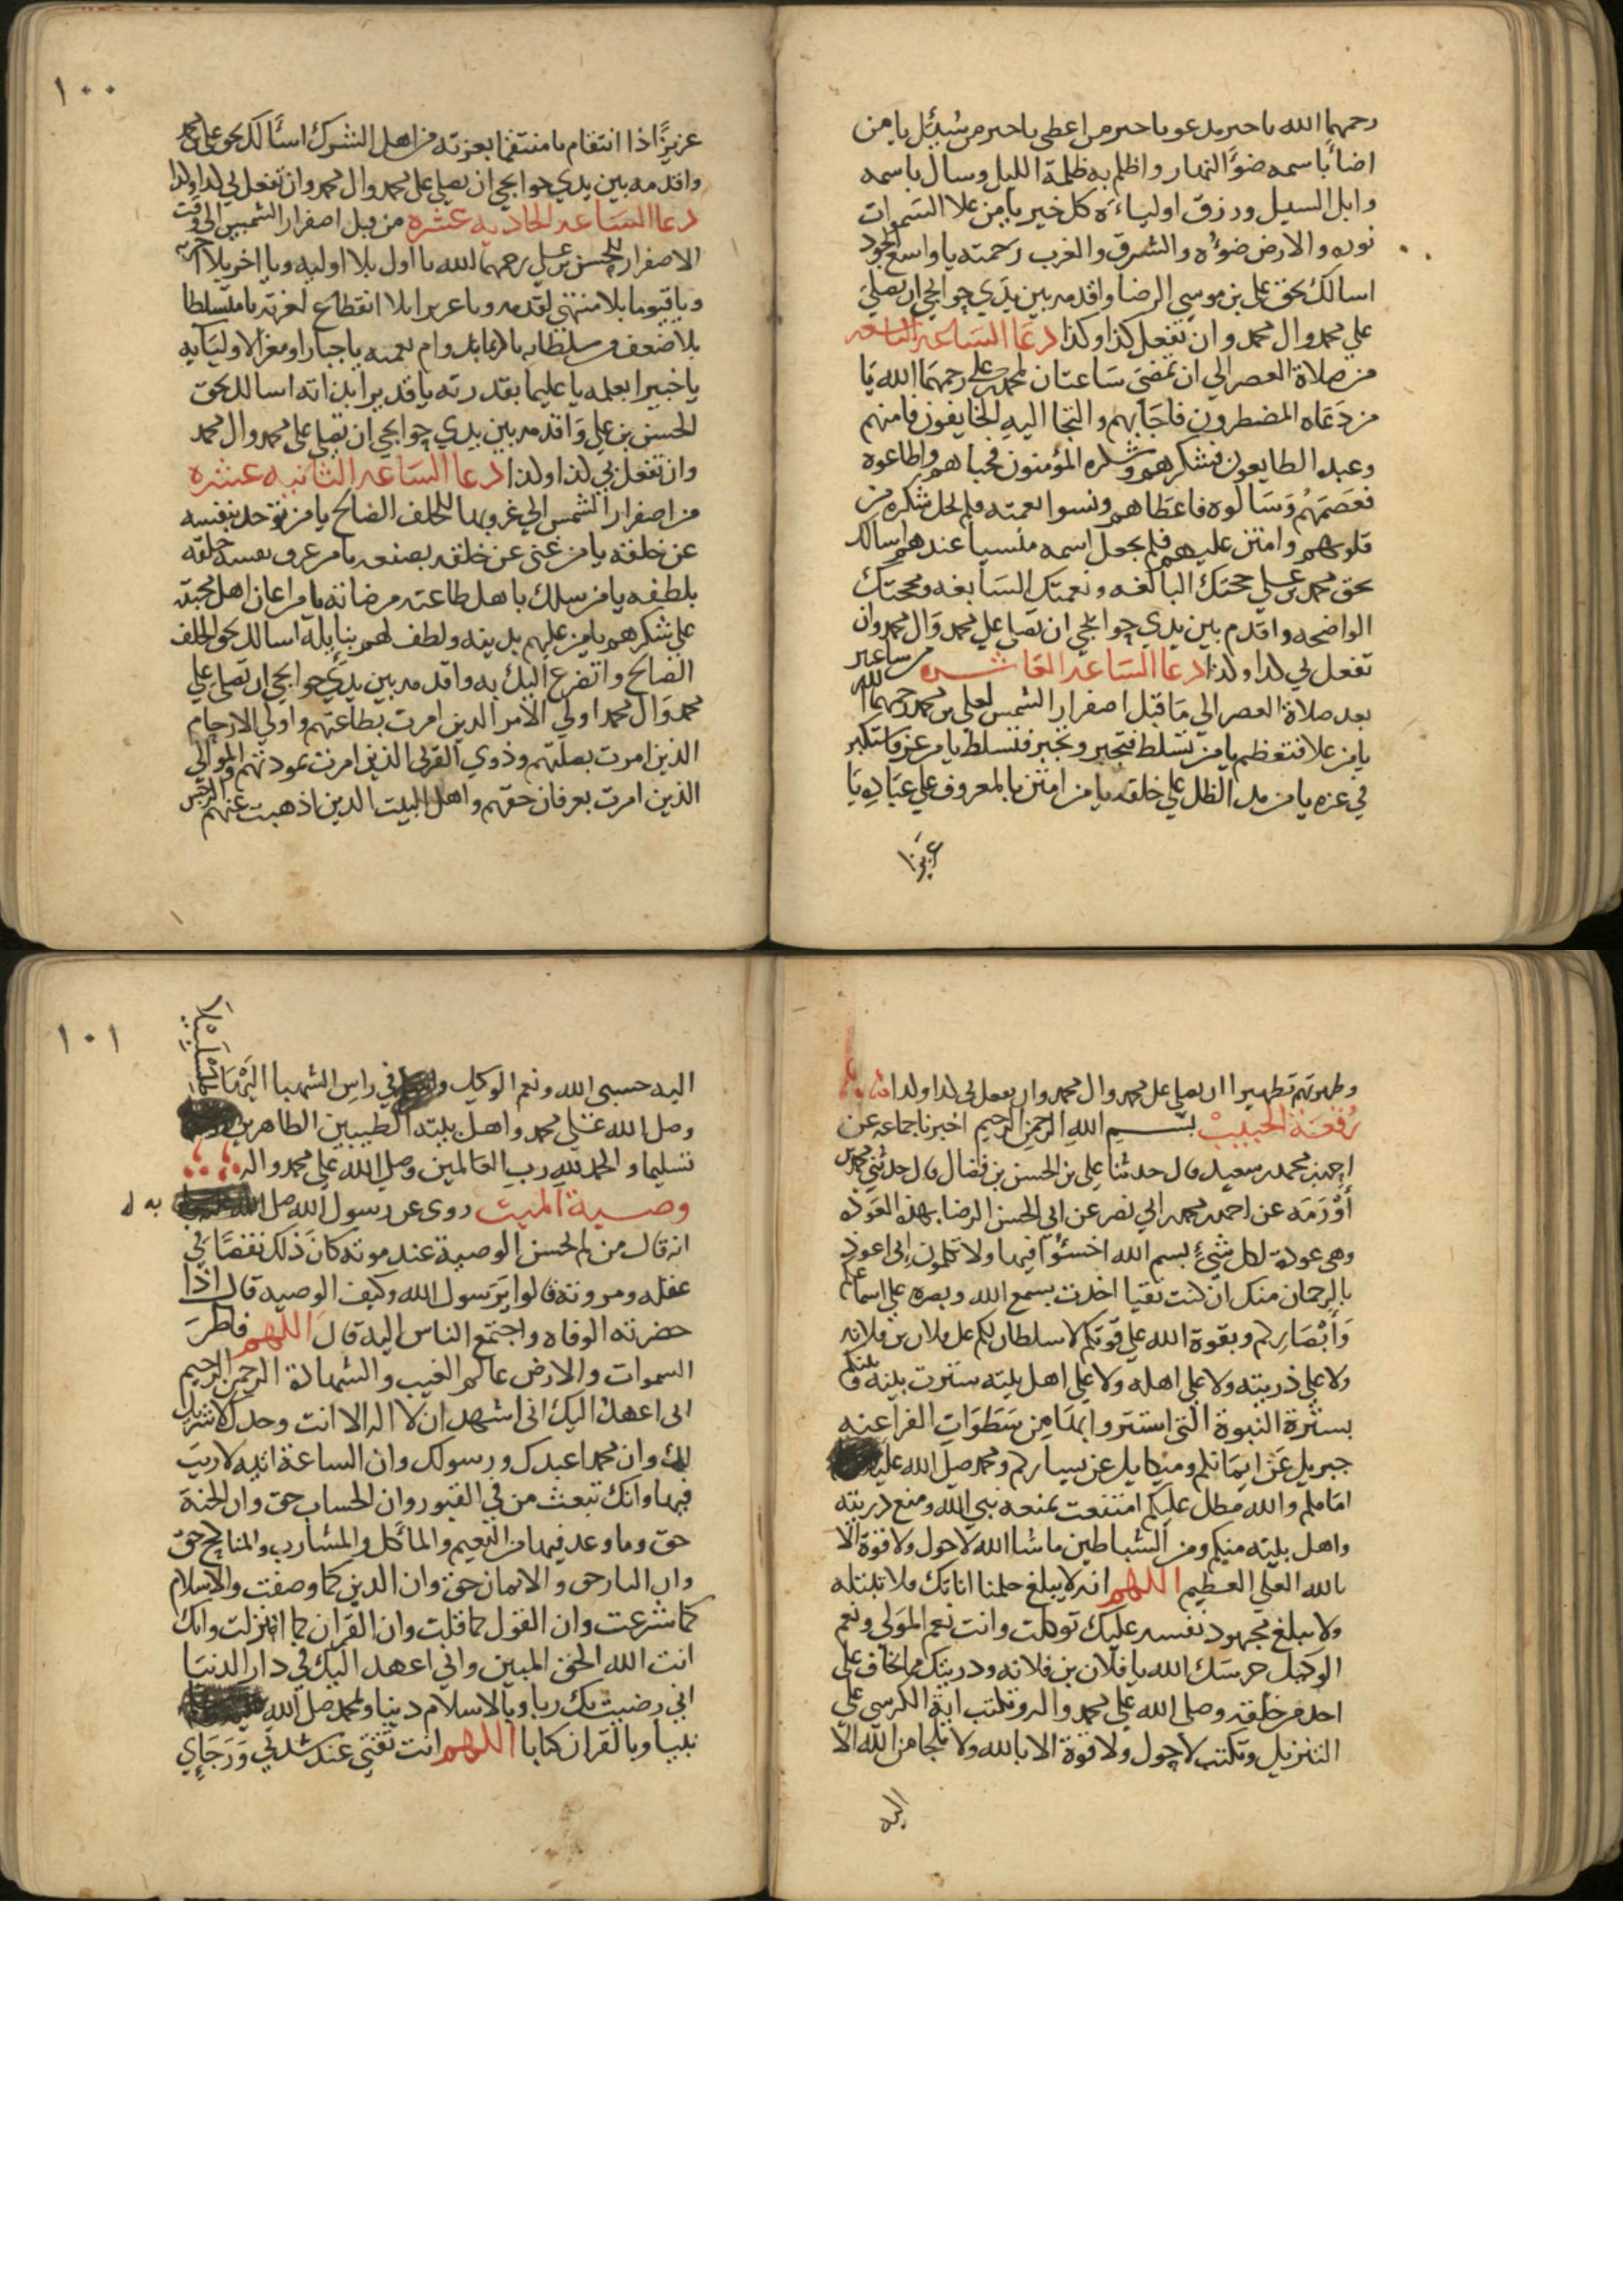 رحمهما الله يا خير مدعو يا خير من اعطى يا خير من سُئِل يا من
اضا باسمه ضوء النهار واظلم به ظلمة الليل وسال باسمه
وابل السيل ورزق اولياءه كل خير يا من علا السموات
نوره والارض ضوءه والشرق والغرب رحمته يا واسع الجود
اسالك بحق علي بن موسى الرضا واقدمه بين يدي حوايجي ان تصلي
علي محمد وال محمد وان تفعل كذا وكذا دعا الساعه التاسعه
من صلاة العصر الي ان تمضي ساعتان لمحمد بن علي رحمهما الله يا
من دعاه المضطرون فاجابهم والتجا اليه الخايفون فامنهم
وعبده الطايعون فشكرهم وشكره المؤمنون فحباهم واطاعوه
فعصمهم وسالوه فاعطاهم ونسوا نعمته فلم يخل شكره من
قلوبهم وامتن عليهم فلم يجعل اسمه منسيا عندهم اسالك
بحق محمد بن علي حجتك البالغه ونعمتك السابغه ومحجتك
الواضحه واقدم بين يدي حوايجي ان تصلي علي محمد وال محمد وان
تفعل لي كدا وكدا دعا الساعه العاشره من ساعتين
بعد صلاة العصر الي ما قبل اصفرار الشمس لعلي بن محمد رحمهما الله
يا من علا فتعظم يا من تسلط فتجبر وتجبر فتسلط يا من عز فاستكبر
في عزه يا من مد الظل علي خلقه يا من امتن بالمعروف علي عباده يا
عزيزا
١٠٠
عزيزًا ذا انتقام يا منتقما بعزته من اهل الشرك اسألك بحق علي بن محمد
واقدمه بين يدي حوايجي ان تصلي علي محمد وال محمد وان تفعل لي كدا وكدا
دعا الساعه الحاديه عشره من قبل اصفرار الشمس الي وقت
الاصفرار للحسن بن علي رحمهما الله يا اول بلا اوليه ويا اخر بلا اخريه
ويا قيوما بلا منتهى لقدمه ويا عزيزا بلا انقطاع لعزته يا متسلطا
بلا ضعف من سلطانه يا كريما بدوام نعمته يا جبارا ومعزا لاوليايه
يا خبيرا بعلمه يا عليما بقدرته يا قديرا بذاته اسالك بحق
الحسن بن علي واقدمه بين يدي حوايجي ان تصلي علي محمد وال محمد
وان تفعل بي كدا وكدا دعا الساعه الثانيه عشره
من اصفرار الشمس الي غروبها للخلف الصالح يا من توحد بنفسه
عن خلقه يا من غني عن خلقه بصنعه يا من عرف نفسه خلقه
بلطفه يا من سلك باهل طاعته مرضاته يا من اعان اهل محبته
علي شكرهم يا من عليهم بدينه ولطف لهم بنايله اسالك بحق الخلف
الصالح واتضرع اليك به واقدمه بين يدي حوايجي ان تصلي علي
محمد وال محمد اولي الامر الدين امرت بطاعتهم واولي الارحام
الذين امرت بصلتهم وذوي القربي الذين امرت بمودتهم والموالي
الذين امرت بعرفان حقهم واهل البيت الدين اذهبت عنهم الرجس
وطهرتهم تطهيرا ان تصلي على محمد وال محمد وان تفعل لي كدا وكدا
رُقعَة الجيب بسم الله الرحمن الرحيم اخبرنا جماعه عن
احمد بن محمد بن سعيد قال حدثنا علي بن الحسن بن فضال قال حدثني محمد بن
أُوْرَمَه عن احمد بن محمد بن ابي نصر عن ابي الحسن الرضا بهذه العوذه
وهي عوذة لكل شيء بسم الله اخسئوا فيها ولا تكلمون اني اعوذ
بالرحمان منك ان كنت تقيا اخذت بسمع الله وبصره علي اسماعكم
وَأبْصَارِكم وبقوة الله علي قوتكم لا سلطان لكم على فلان بن فلانه
ولا علي ذريته ولا علي اهله ولا علي اهل بيته سترت بينه وبينكم
بسترة النبوة التي استتروا بها من سَطَوَاتِ الفراعنه
جبريل عن ايمانكم وميكايل عن يساركم ومحمد صلى الله عليه
امامكم والله مطل عليكم امتنعت بمنعه نبي الله ومنع دريته
واهل بيته منكم ومن الشياطين ما شا الله لا حول ولا قوة الا
بالله العلي العظيم اللهم انه لا يبلغ حلمنا اناتك ولا تبتله
ولا يبلغ مجهود نفسه عليك توكلت وانت نعم المولي ونعم
الوكيل حرسك الله يا فلان بن فلانه ودريتك مما تخاف علي
احد من خلقه وصلى الله علي محمد واله وتكتب اية الكرسي علي
التنزيل وتكتب لا حول ولا قوة الا بالله ولا ملجا من الله الا
اليه
١٠١
اليه حسبي الله ونعم الوكيل في راس الشهبا اليَهْيَا
وصل الله علي محمد واهل بيته الطيبين الطاهرين
تسليما والحمد لله رب العالمين وصلي الله علي محمد واله
وصية الميت روى عن رسول الله صل الله
انه قال من لم يحسن الوصية عند موته كان ذلك نقصا في
عقله ومروته قالوا يرسول الله وكيف الوصيه قال اذا
حضرته الوفاه واجتمع الناس اليه قال اللهم فاطر
السموات والارض عالم الغيب والشهادة الرحمن الرحيم
اني اعهد اليك اني اشهد ان لا اله الا انت وحدك لا شريك
لك وان محمدا عبدك ورسولك وان الساعة اتيه لا ريب
فيها وانك تبعث من في القبور وان الحساب حق وان الجنة
حق وما وعد فيها من النعيم والمأكل والمشارب والمناكح حق
وان النار حق والايمان حق وان الدين كما وصفت والاسلام
كما شرعت وان القول كما قلت وان القران كما انزلت وانك
انت الله الحق المبين واني اعهد اليك في دار الدنيا
اني رضيت بك ربا وبالاسلام دينا وبمحمد صل الله
نبيا وبالقران كتابا اللهم انت ثقتي عند شدتي وَرَجَائِي